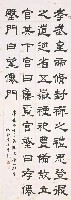 孝武皇帝修封禪之禮思登徦
之道巡省五嶽禋祀豐備故立
宮其下宮曰集靈宮殿曰存僊
殿門曰望僊門